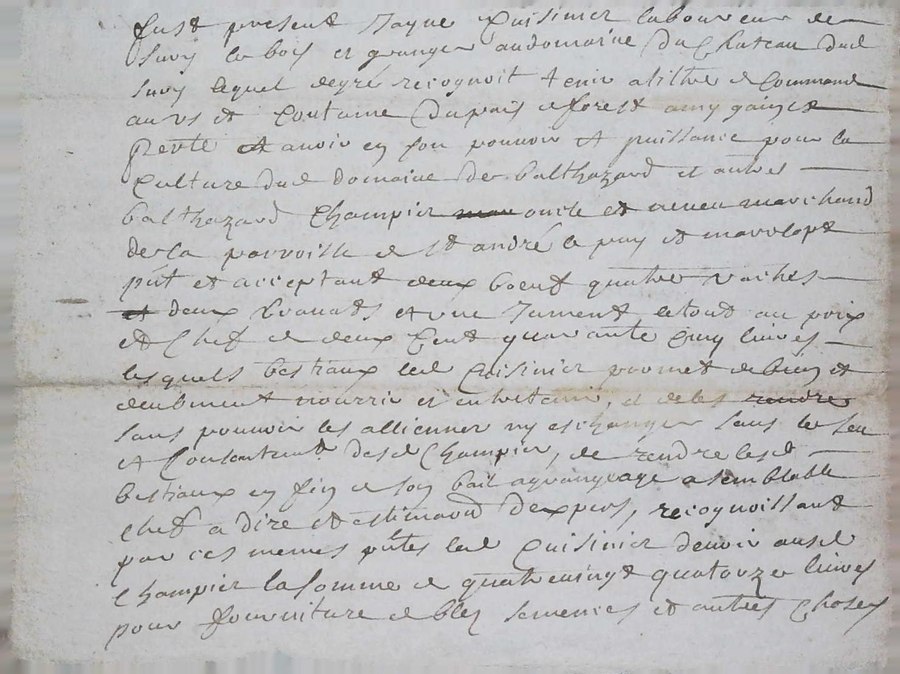 fust present Jayme Cuisinier laboureur de
Sury le bois et granger au domaine du Chateau dud
Sury lequel de gré recognoit tenir a tiltre de Commande
au us et Coutume du pais de forest a my gain et
perte et avoir en son pouvoir et puissance pour la
Culture dud domaine de balthazard et autres
balthazard Champier oncle et neveu marchand
de la parroisse de St andré le puy et
pnt et acceptant deux boeuf quatre vaches
et deux et une Jument le tout au prix
et Chef de deux Cent quarante Cinq livres
lesquels bestiaux led Cuisinier promet de bien et
deubment nourrir et entretenir, et de les rendre
sans pouvoir les allienner ny eschanger sans le sceu
et Consentemt desd Champier, de rendre lesd
bestiaux en fin de son bail a grangeage a semblable
Chef a dire et estimaon dexpers, recognoissant
par ces memes pntes led Cuisinier devoir ausd
Champier la somme de quatrevingt quatorze livres
pour fourniture de bled semences et autres Choses